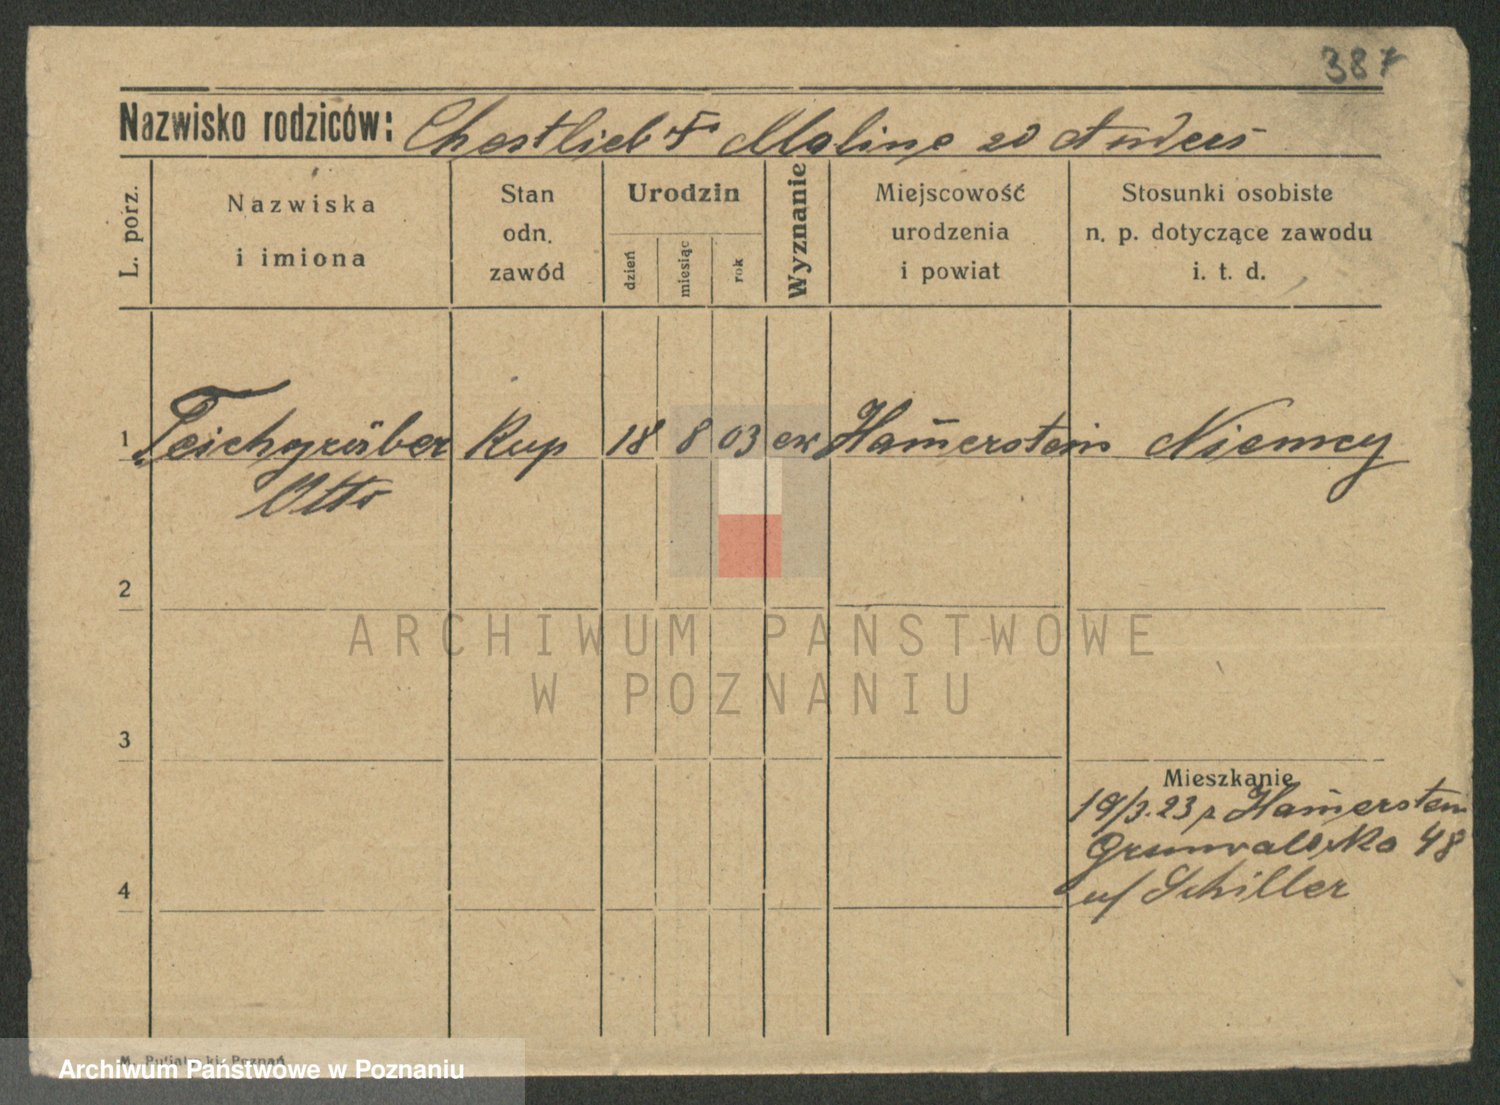 387
Nazwisko rodziców: Chestlieb † Maline zd Anders
L. porz.
Nazwiska
i imiona
Stan
odn.
zawód
Urodzin
dzień
miesiąc
rok
Wyznanie
Miejscowość
urodzenia
i powiat
Stosunki osobiste
n. p. dotyczące zawodu
i. t. d.
1 Teichgräber Kup 18 8 03 ew Ham̄erstein Niemcy
Otto
2
3
4
Mieszkanie
19/3.23 z Ham̄erstein
Grunwaldzka 48
u/ Schiller
ARCHIWUM PAŃSTWOWE
W POZNANIU
M. Poznań
Archiwum Państwowe w Poznaniu